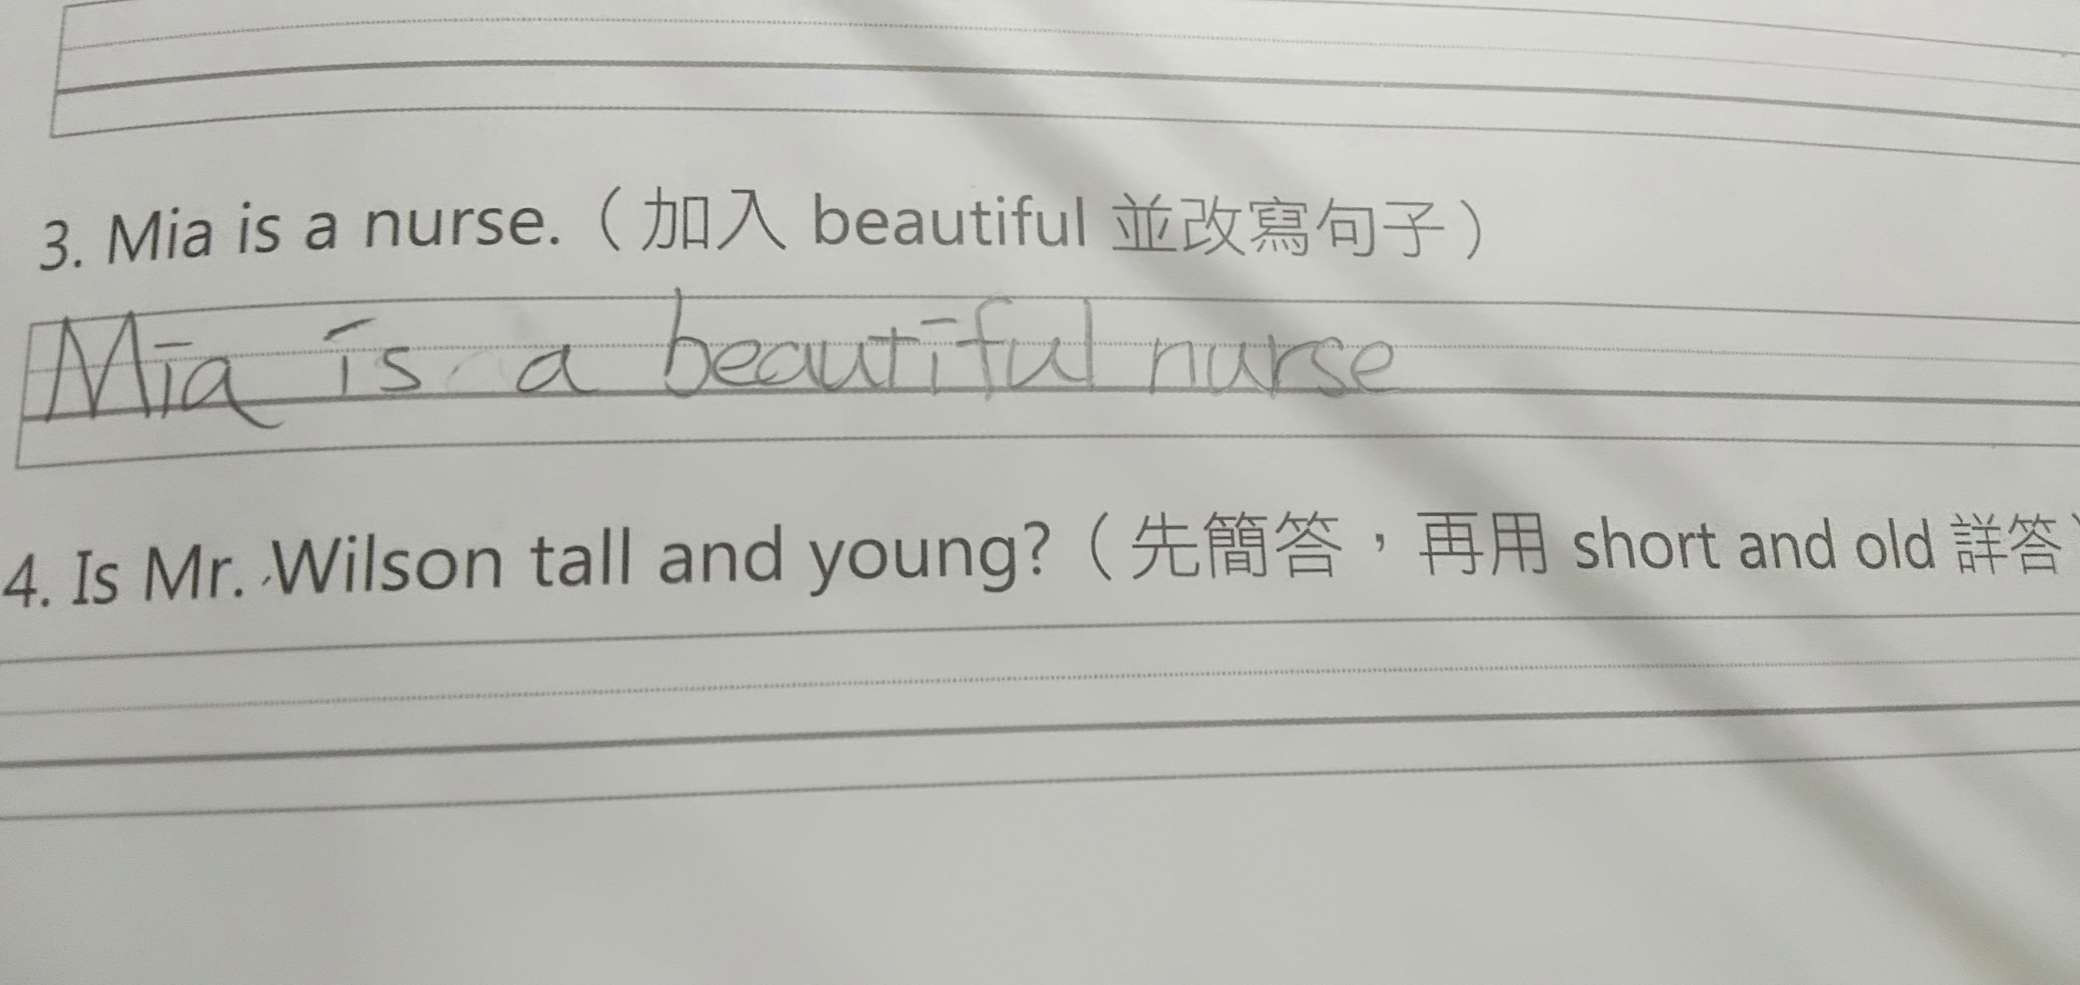 3. Mia is a nurse.（加入 beautiful 並改寫句子）
Mia is a beautiful nurse
4. Is Mr. Wilson tall and young?（先簡答，再用 short and old 詳答）